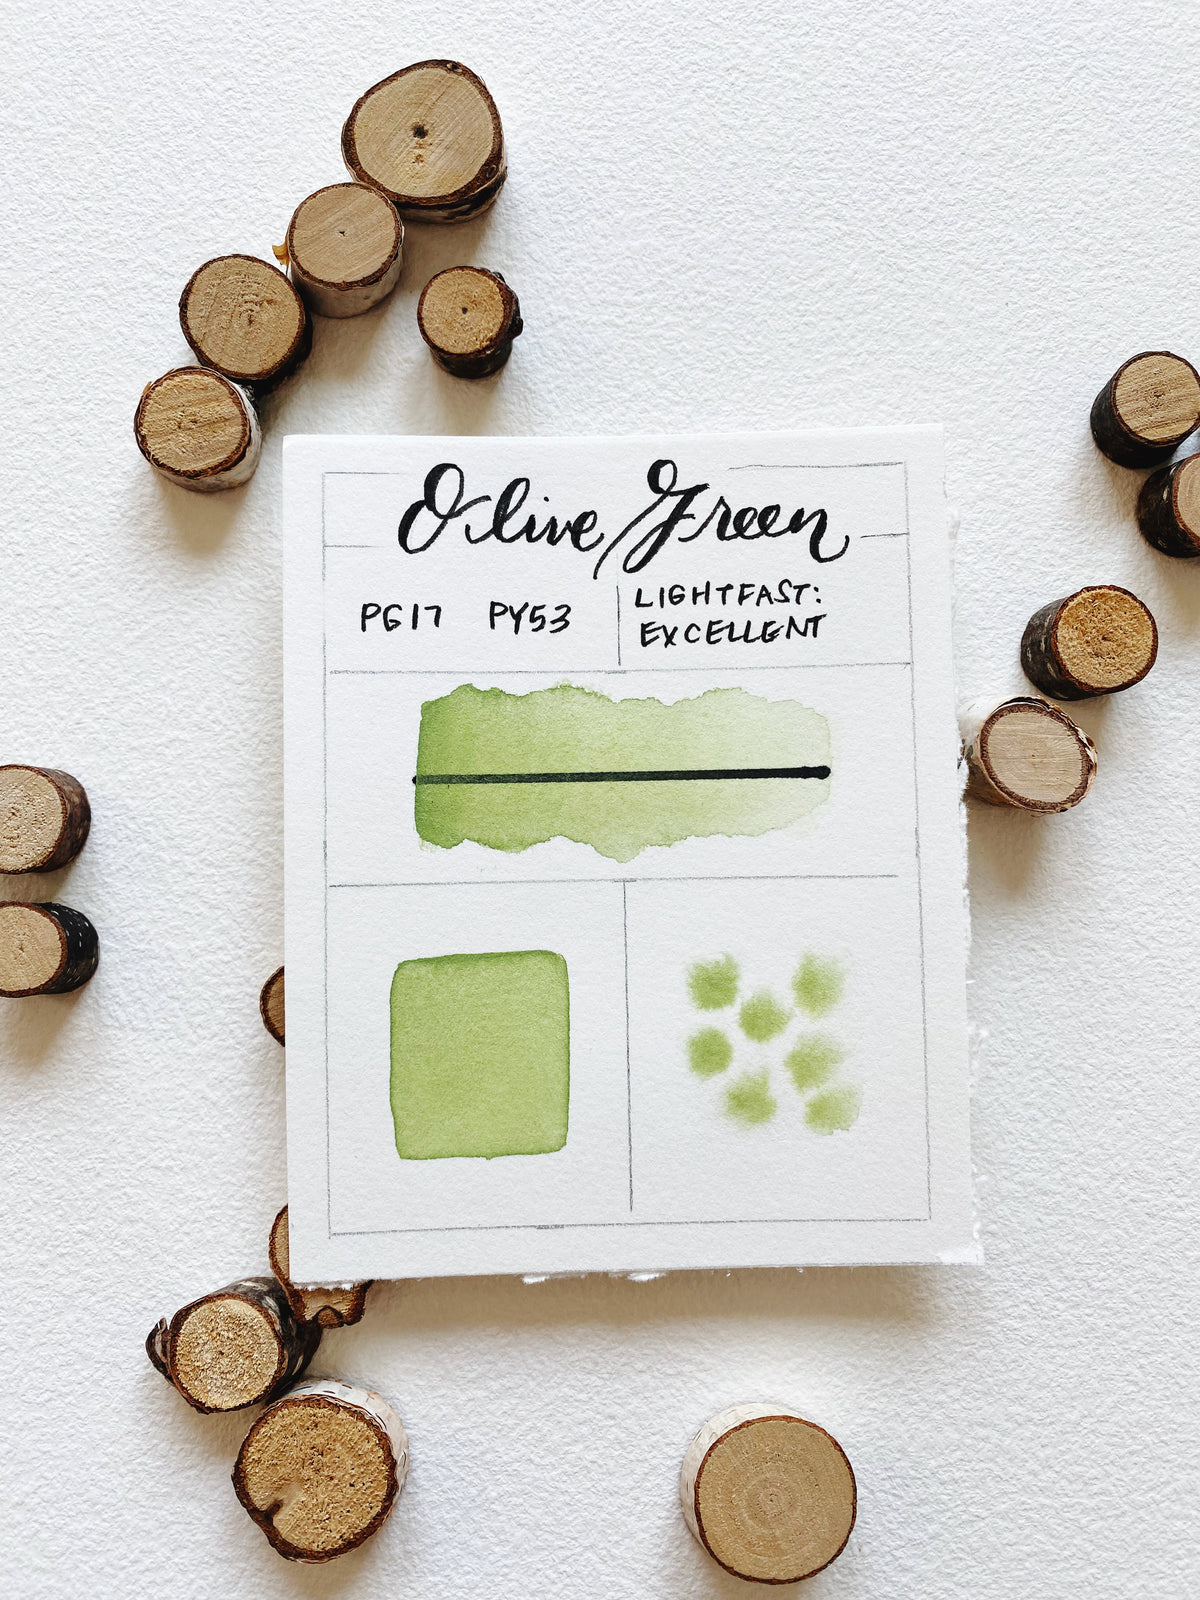 Olive Green
PG17 PY53
LIGHTFAST:
EXCELLENT